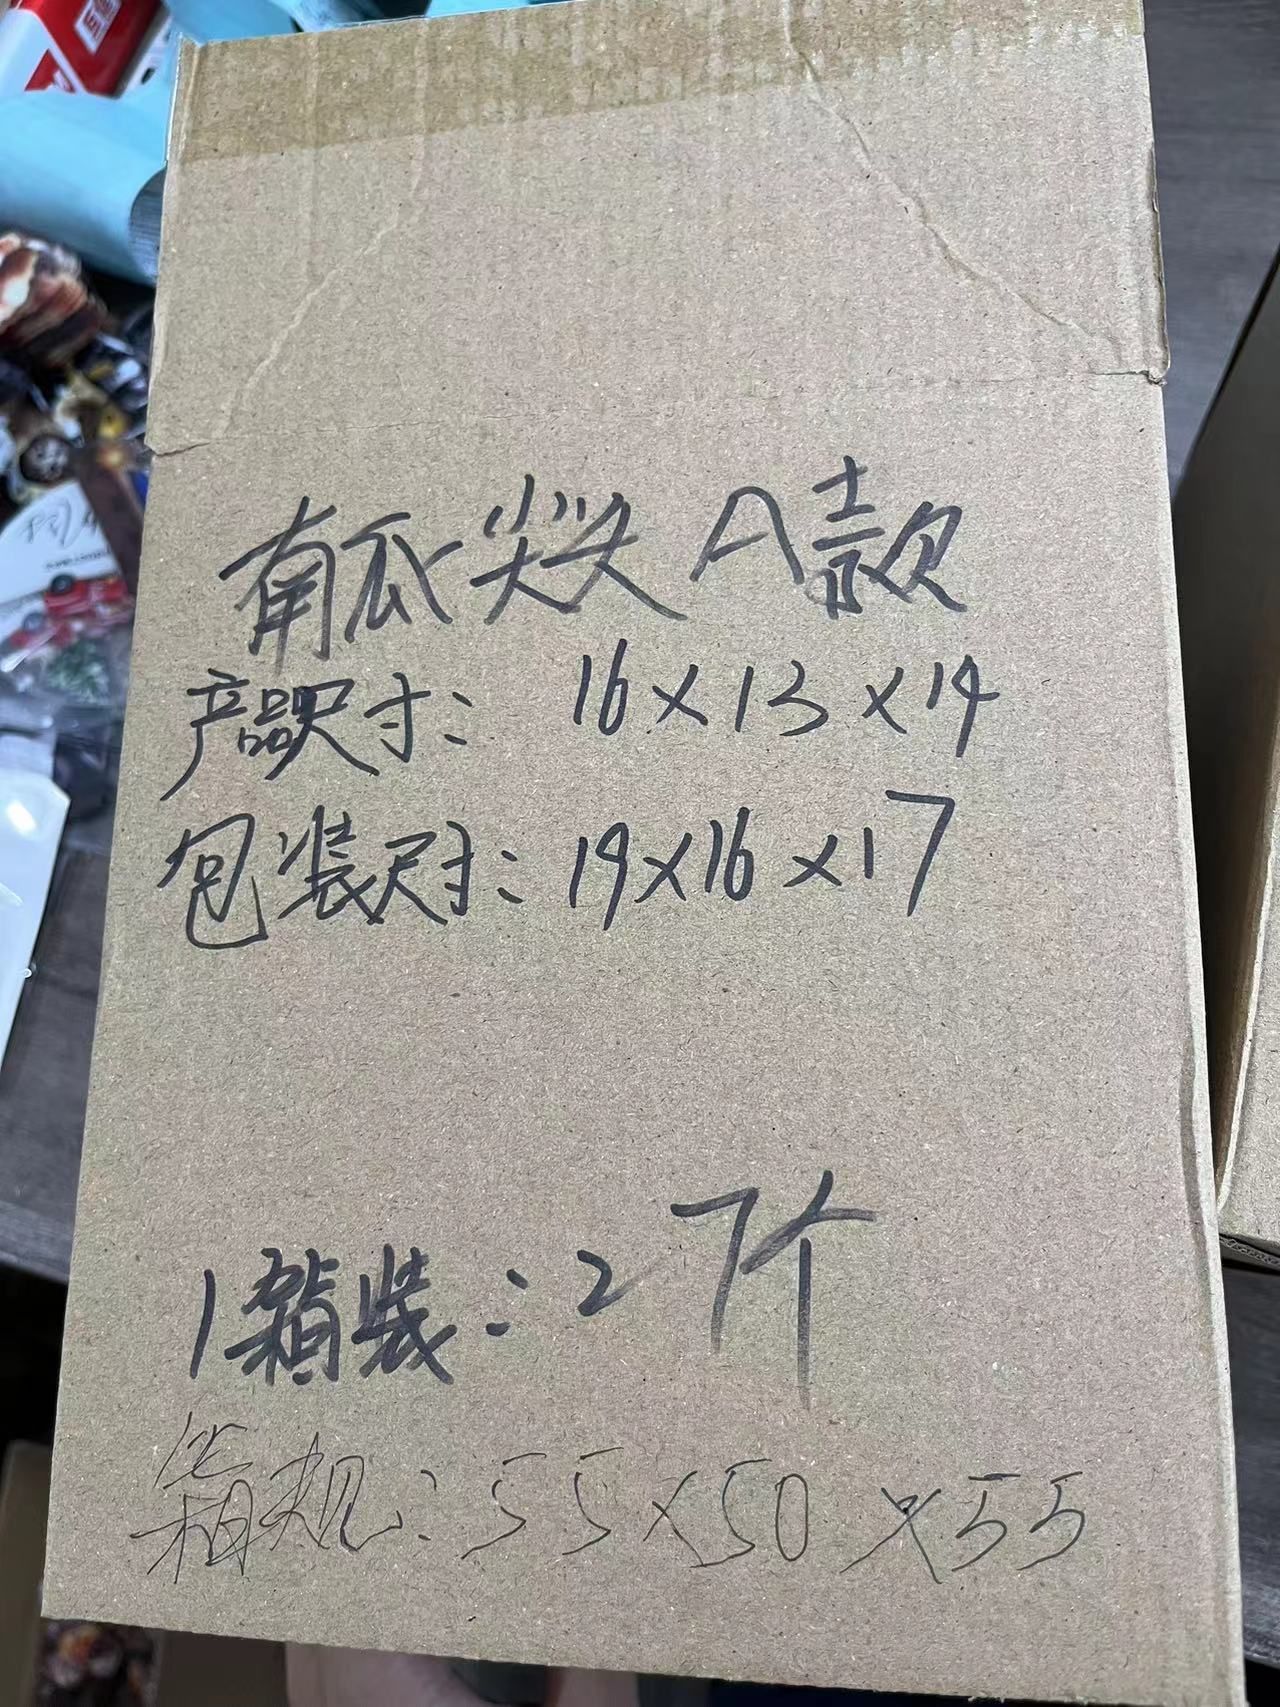 南瓜尖头A款
产品尺寸: 16×13×14
包装尺寸: 19×16×17
1箱装: 27个
箱规: 55×50×55